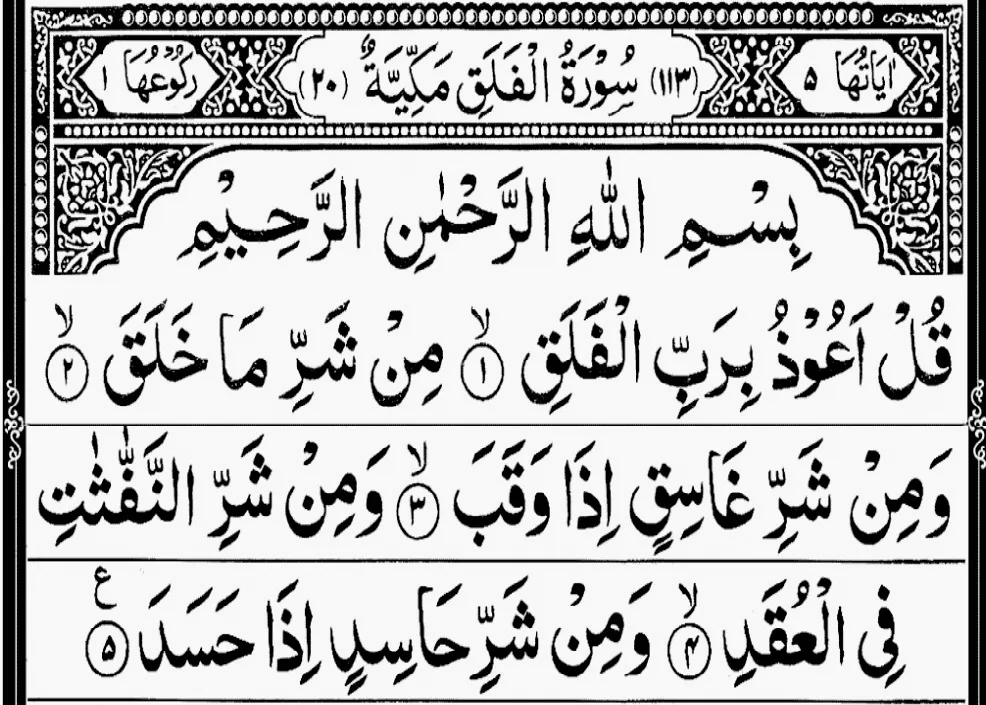 اٰيَاتُهَا ٥ (١١٣) سُوْرَةُ الْفَلَقِ مَكِّيَّةٌ (٢٠) رُكُوْعُهَا ١
بِسْمِ اللّٰهِ الرَّحْمٰنِ الرَّحِيْمِ
قُلْ اَعُوْذُ بِرَبِّ الْفَلَقِ ۙ﴿١﴾ مِنْ شَرِّ مَا خَلَقَ ۙ﴿٢﴾
وَمِنْ شَرِّ غَاسِقٍ اِذَا وَقَبَ ۙ﴿٣﴾ وَمِنْ شَرِّ النَّفّٰثٰتِ
فِى الْعُقَدِ ۙ﴿۴﴾ وَمِنْ شَرِّ حَاسِدٍ اِذَا حَسَدَ ﴿۵﴾ ع